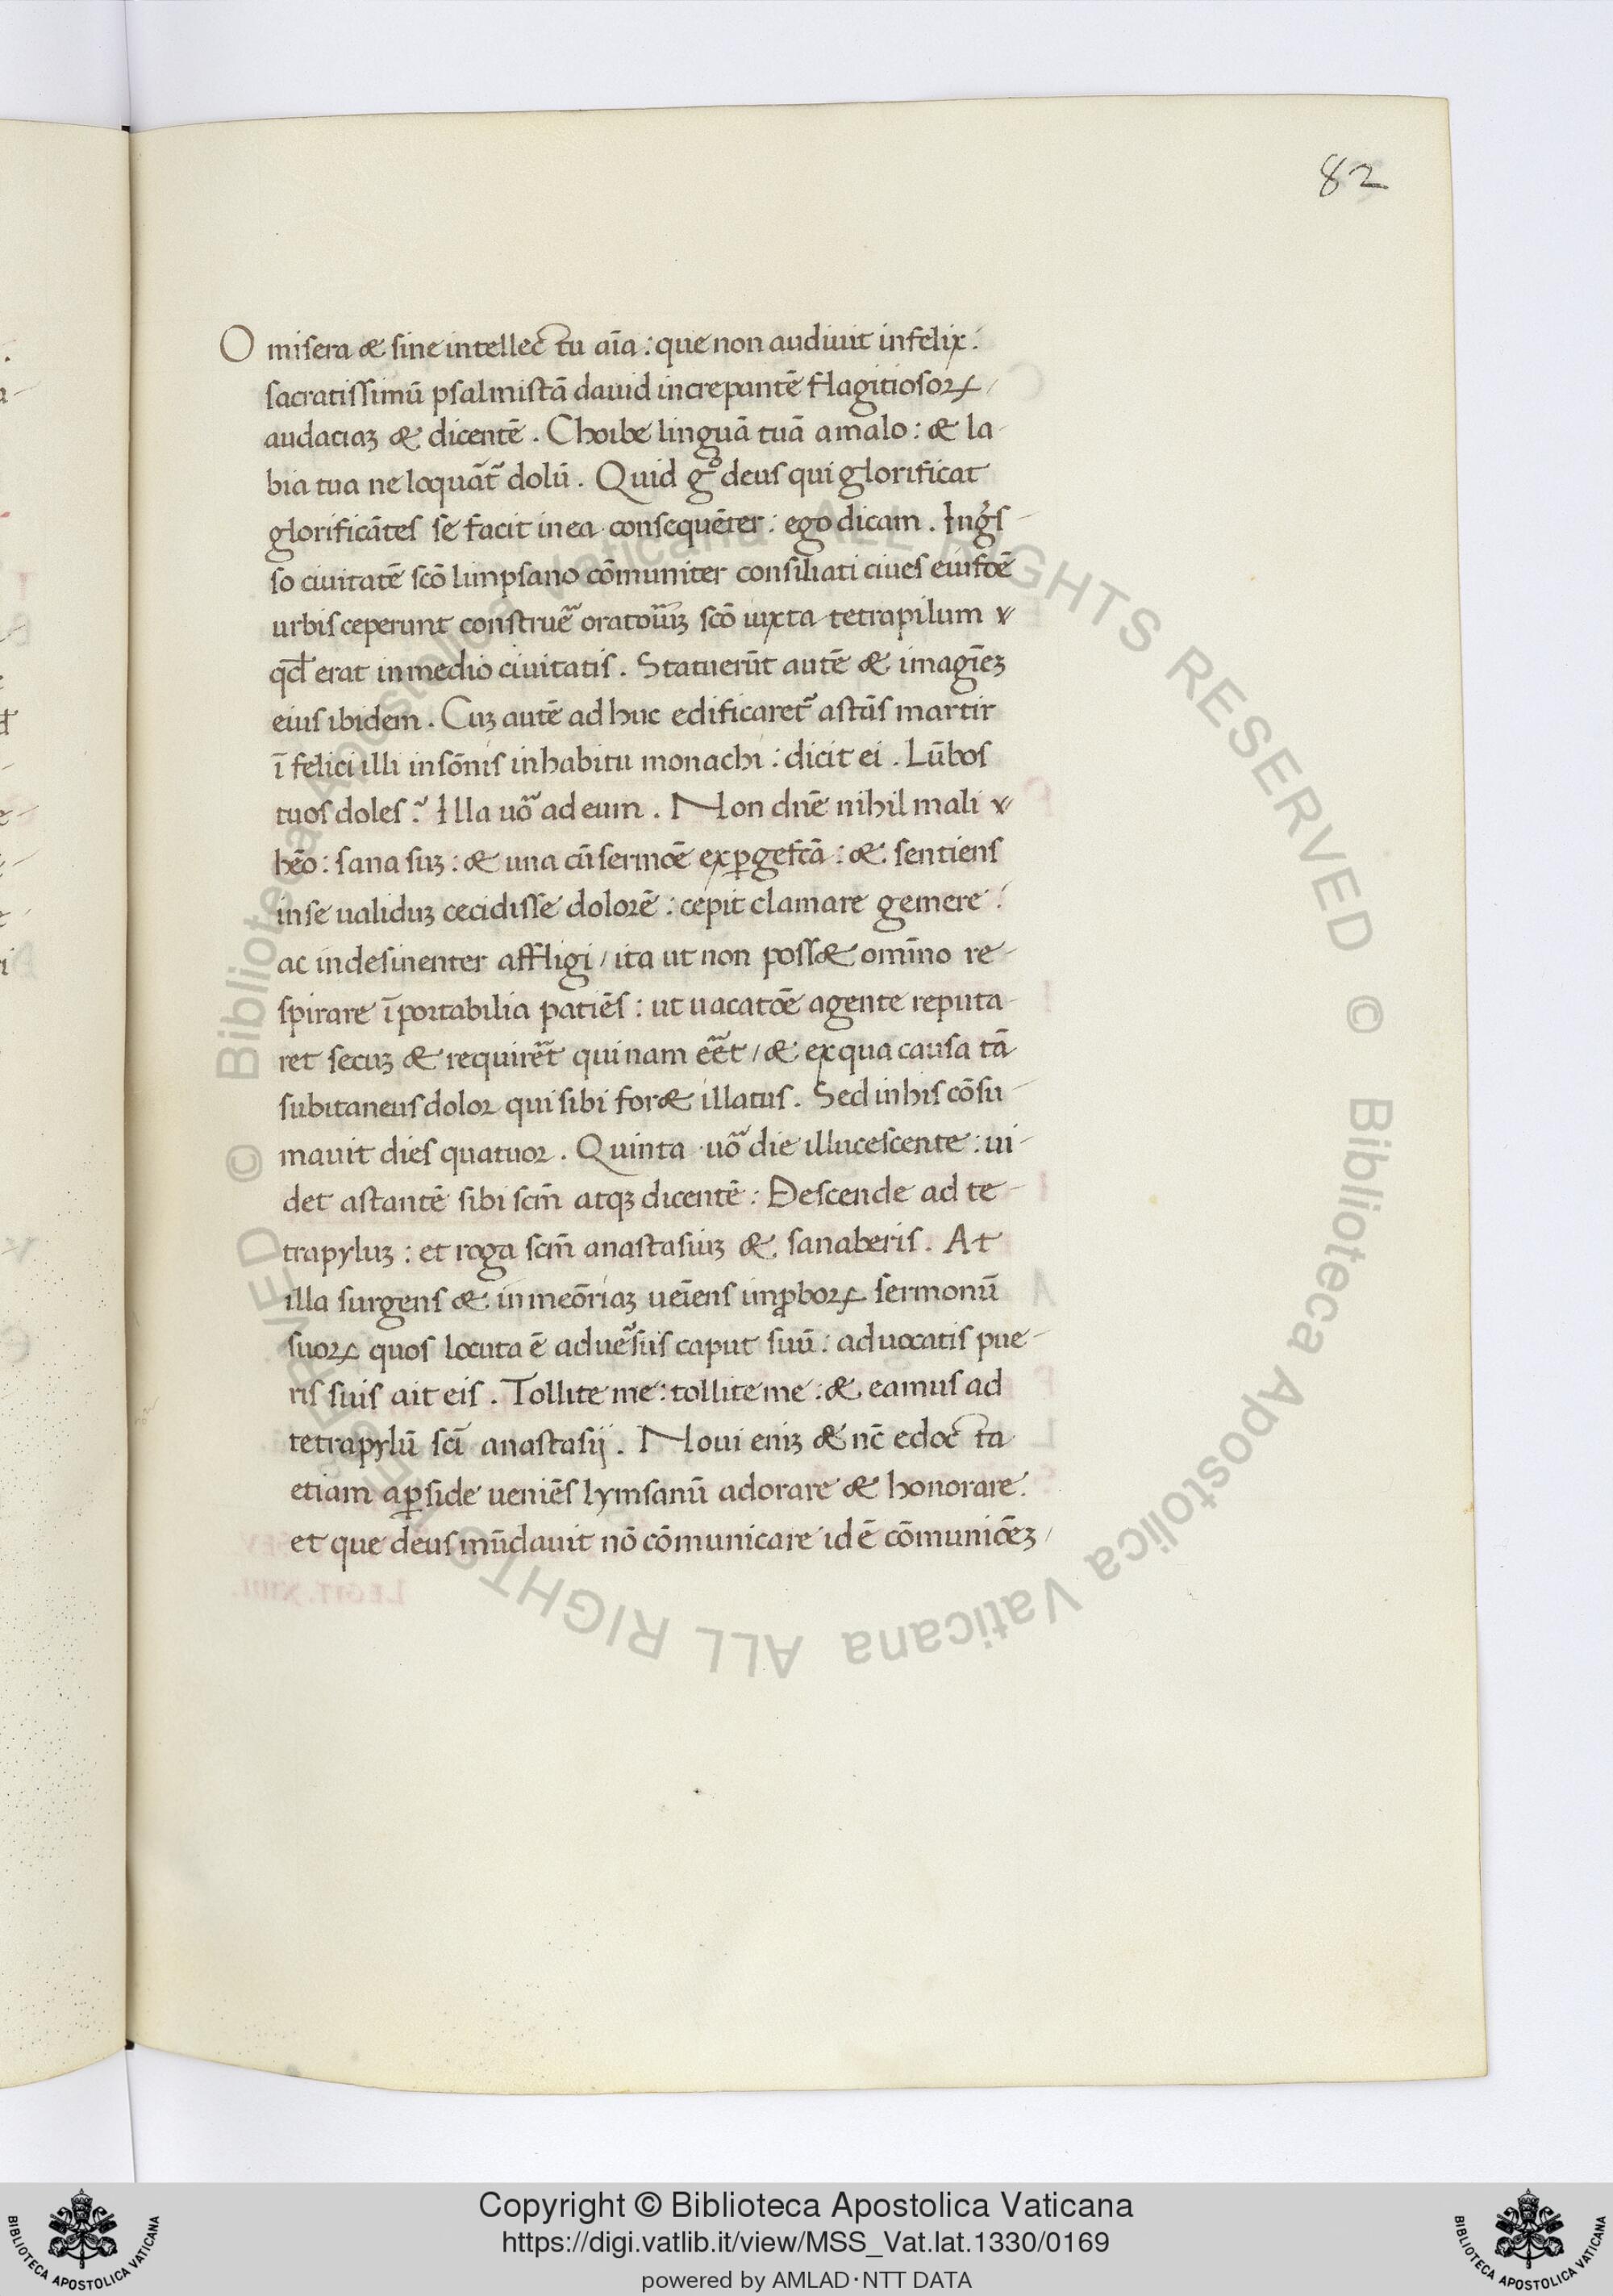 82
O misera & sine intellectu aīa : que non audiuit infelix :
sacratissimū psalmistā dauid increpantē flagitiosoꝝ /
audaciaꝫ & dicentē . Choibe linguā tuā a malo : & la-
bia tua ne loquāt᷑ dolū . Quid gͦ deus qui glorificat
glorificātes se facit in ea consequēter : ego dicam . Ing̃s-
so ciuitatē scō limpsano cōmuniter consiliati ciues eiusdē
urbis ceperunt construe᷑ oratoıu᷑ꝫ scō iuxta tetrapilum
qd̄ erat in medio ciuitatis . Statuerūt autē & imagīeꝫ
eius ibidem . Cuꝫ autē ad huc edificaret᷑ astās martir
ī felici illi in sōnis in habitu monachi : dicit ei . Lūbos
tuos doles ? Illa uo᷑ ad eum . Non dn̄e nihil mali
hēo : sana suꝫ : & una cū sermōe exꝑgefcā : & sentiens
in se ualiduꝫ cecidisse dolorē : cepit clamare gemere :
ac indesinenter affligi / ita ut non poss& omīno re-
spirare īportabilia patiēs : ut uacatōe agente reputa-
ret secuꝫ & require᷑t quinam ee᷑t / & ex qua causa tā
subitaneus dolor qui sibi for& illatus . Sed in his cōsu-
mauit dies quatuor . Quinta uo᷑ die illucescente : ui-
det astantē sibi scm̄ atqꝫ dicentē : Descende ad te-
trapyluꝫ : et roga scm̄ anastasiuꝫ & sanaberis . At
illa surgens & in meōriaꝫ ueīens imꝓboꝝ sermonū
suoꝝ quos locuta ē adue᷑sus caput suū : aduocatis pue-
ris suis ait eis . Tollite me : tollite me : & eamus ad
tetrapylū scī anastasij . Noui eniꝫ & nc̄ edocta
etiam a ꝑside ueniēs lymsanū adorare & honorare :
et que deus mūdauit nō cōmunicare id ē cōmunicēꝫ /
© Biblioteca Apostolica Vaticana ALL RIGHTS RESERVED © Biblioteca Apostolica Vaticana ALL RIGHTS RESERVED
Copyright © Biblioteca Apostolica Vaticana
https://digi.vatlib.it/view/MSS_Vat.lat.1330/0169
powered by AMLAD·NTT DATA
BIBLIOTECA APOSTOLICA VATICANA
BIBLIOTECA APOSTOLICA VATICANA